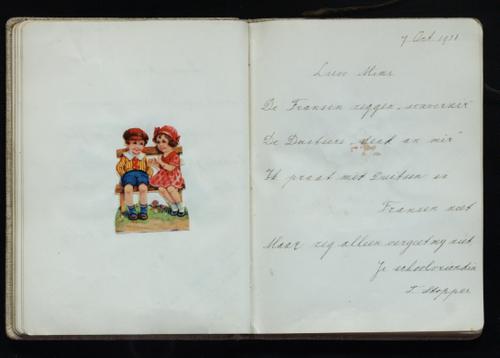 7 Oct. 1931
Lieve Mimi
De Fransen zeggen „souvenir"
De Duitsers „denk an mir"
Ik praat met Duitsen en
Fransen niet
Maar zeg alleen vergeet my niet
Je schoolvriendin
T. Stopper